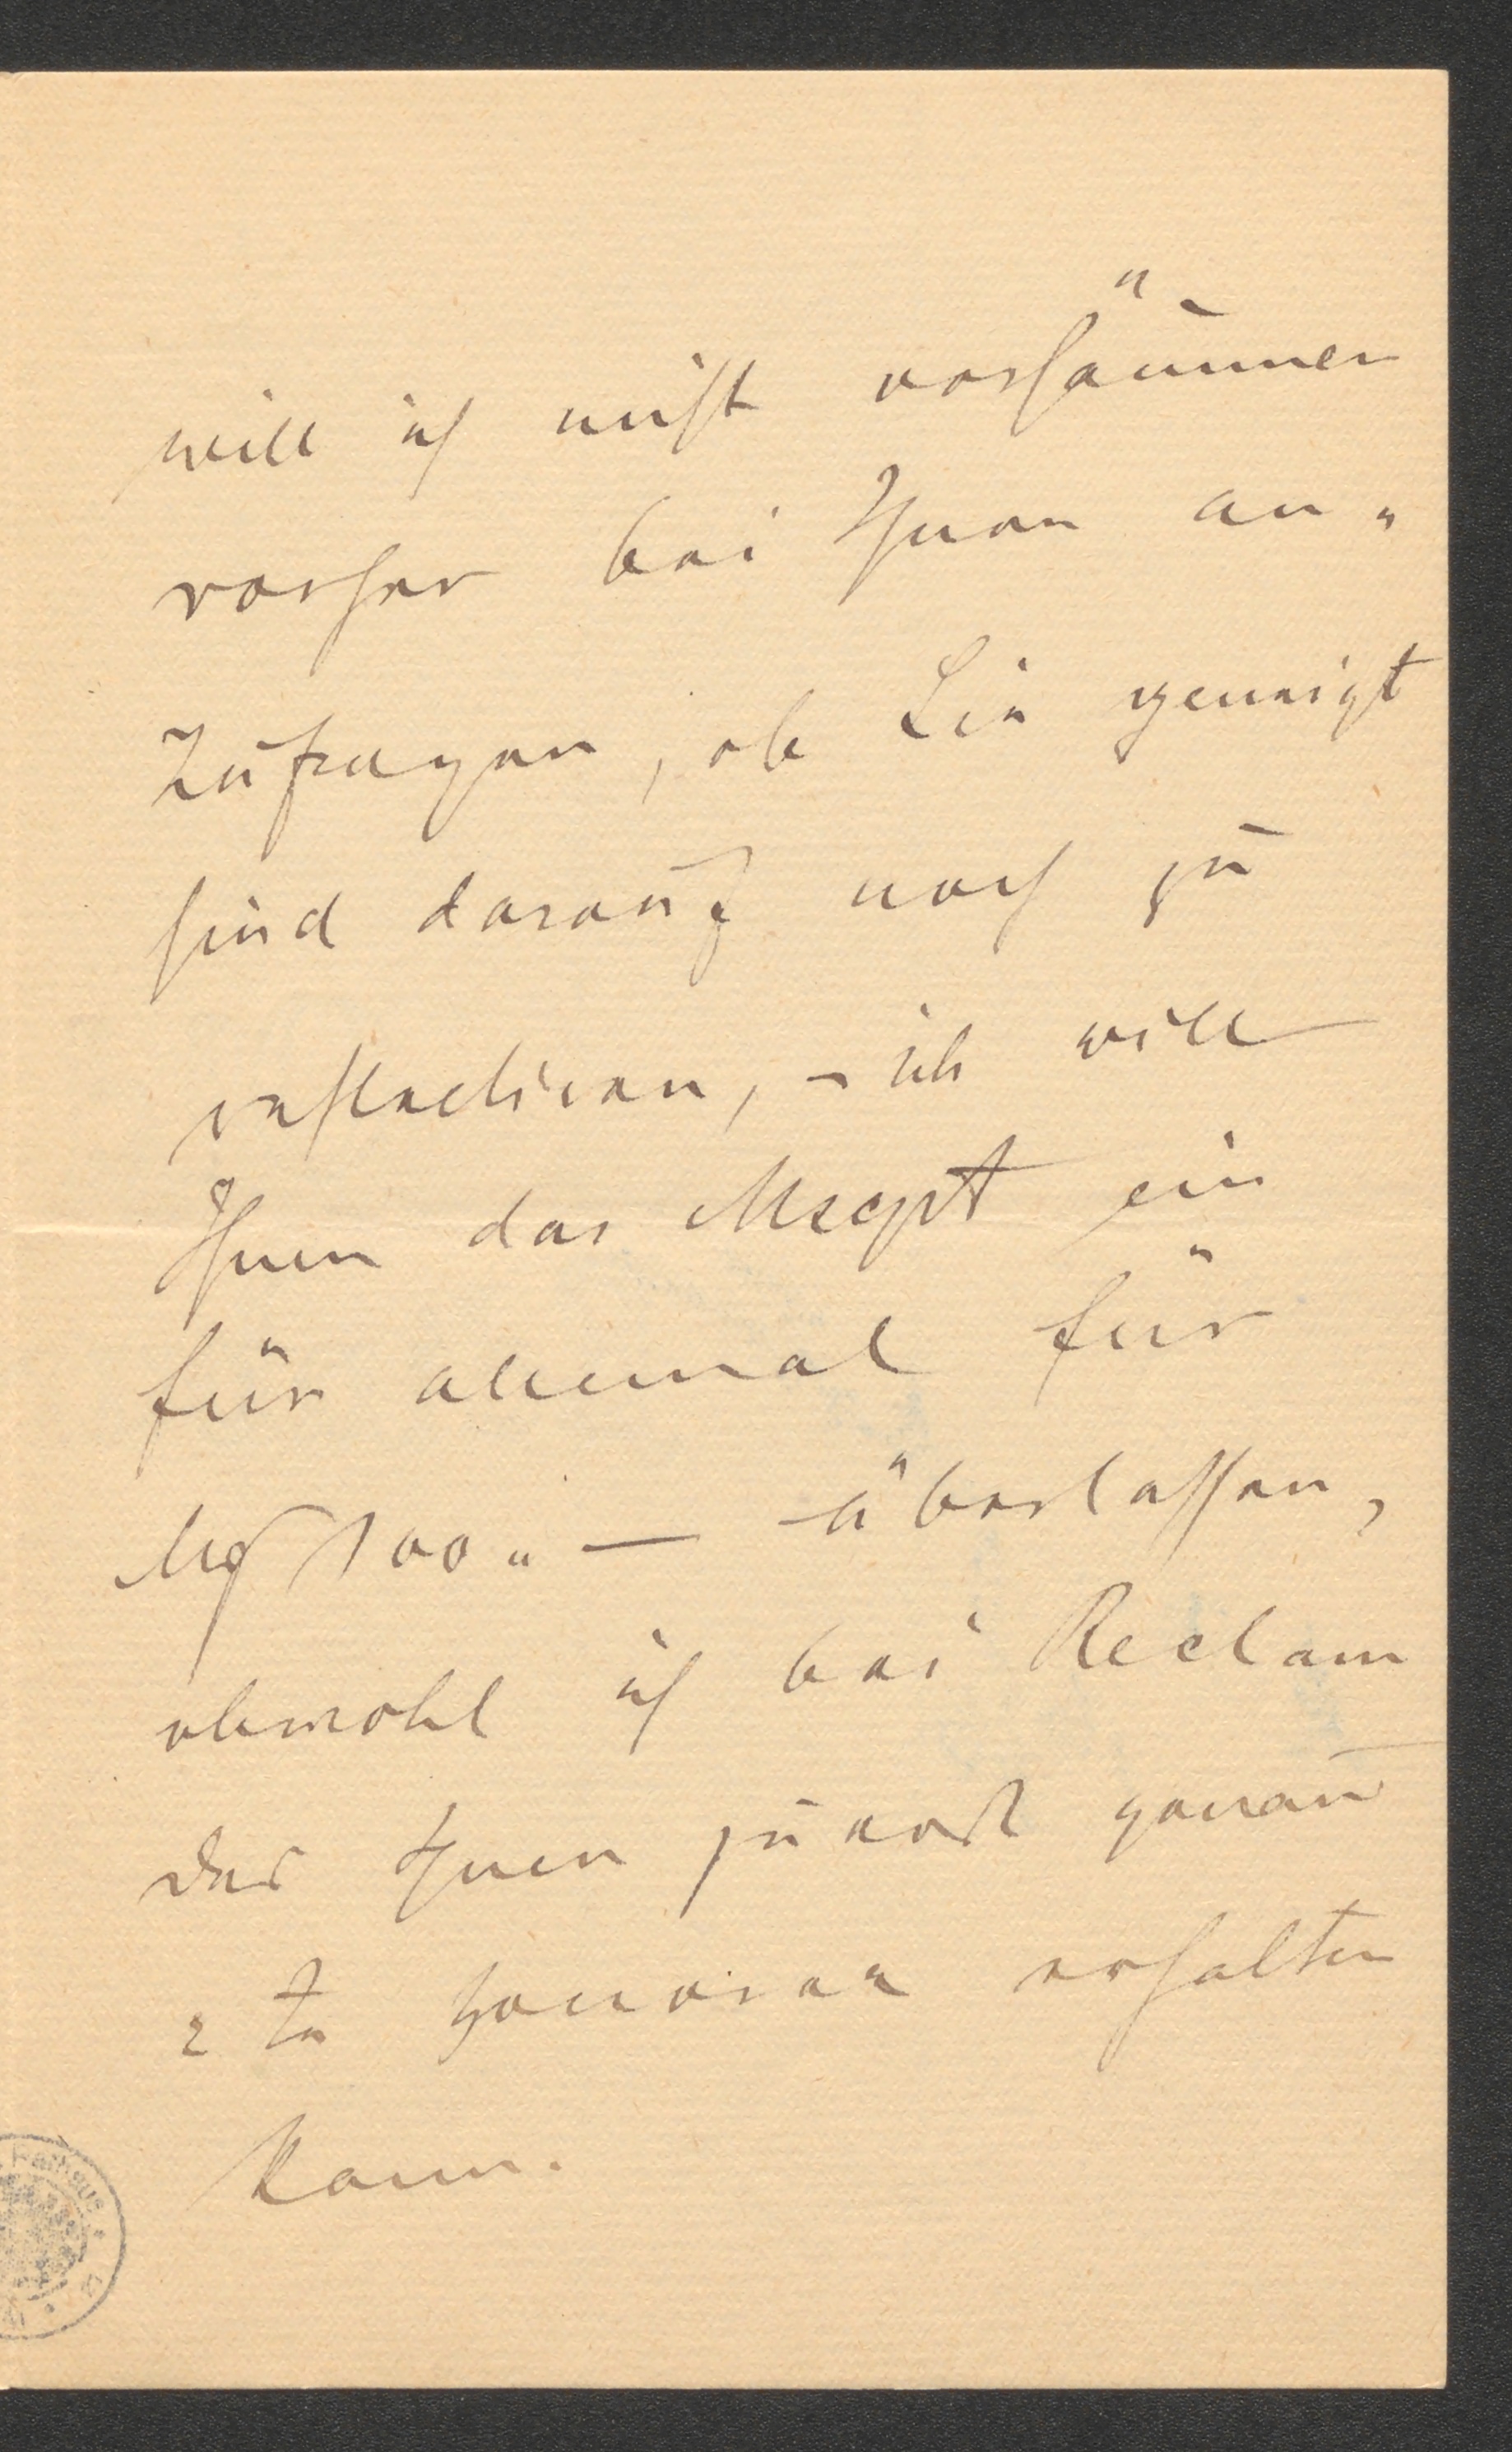 will ich nicht versäumen
vorher bei Ihnen an-
zufragen, ob Sie geneigt
sind darauf noch zu
reflectiren, – ich will
Ihnen das Mscpt ein
für allemal für
M 100.– überlassen,
obwohl ich bei Reclam
das Ihnen zuerst genannte
Honorar erhalten
kann.